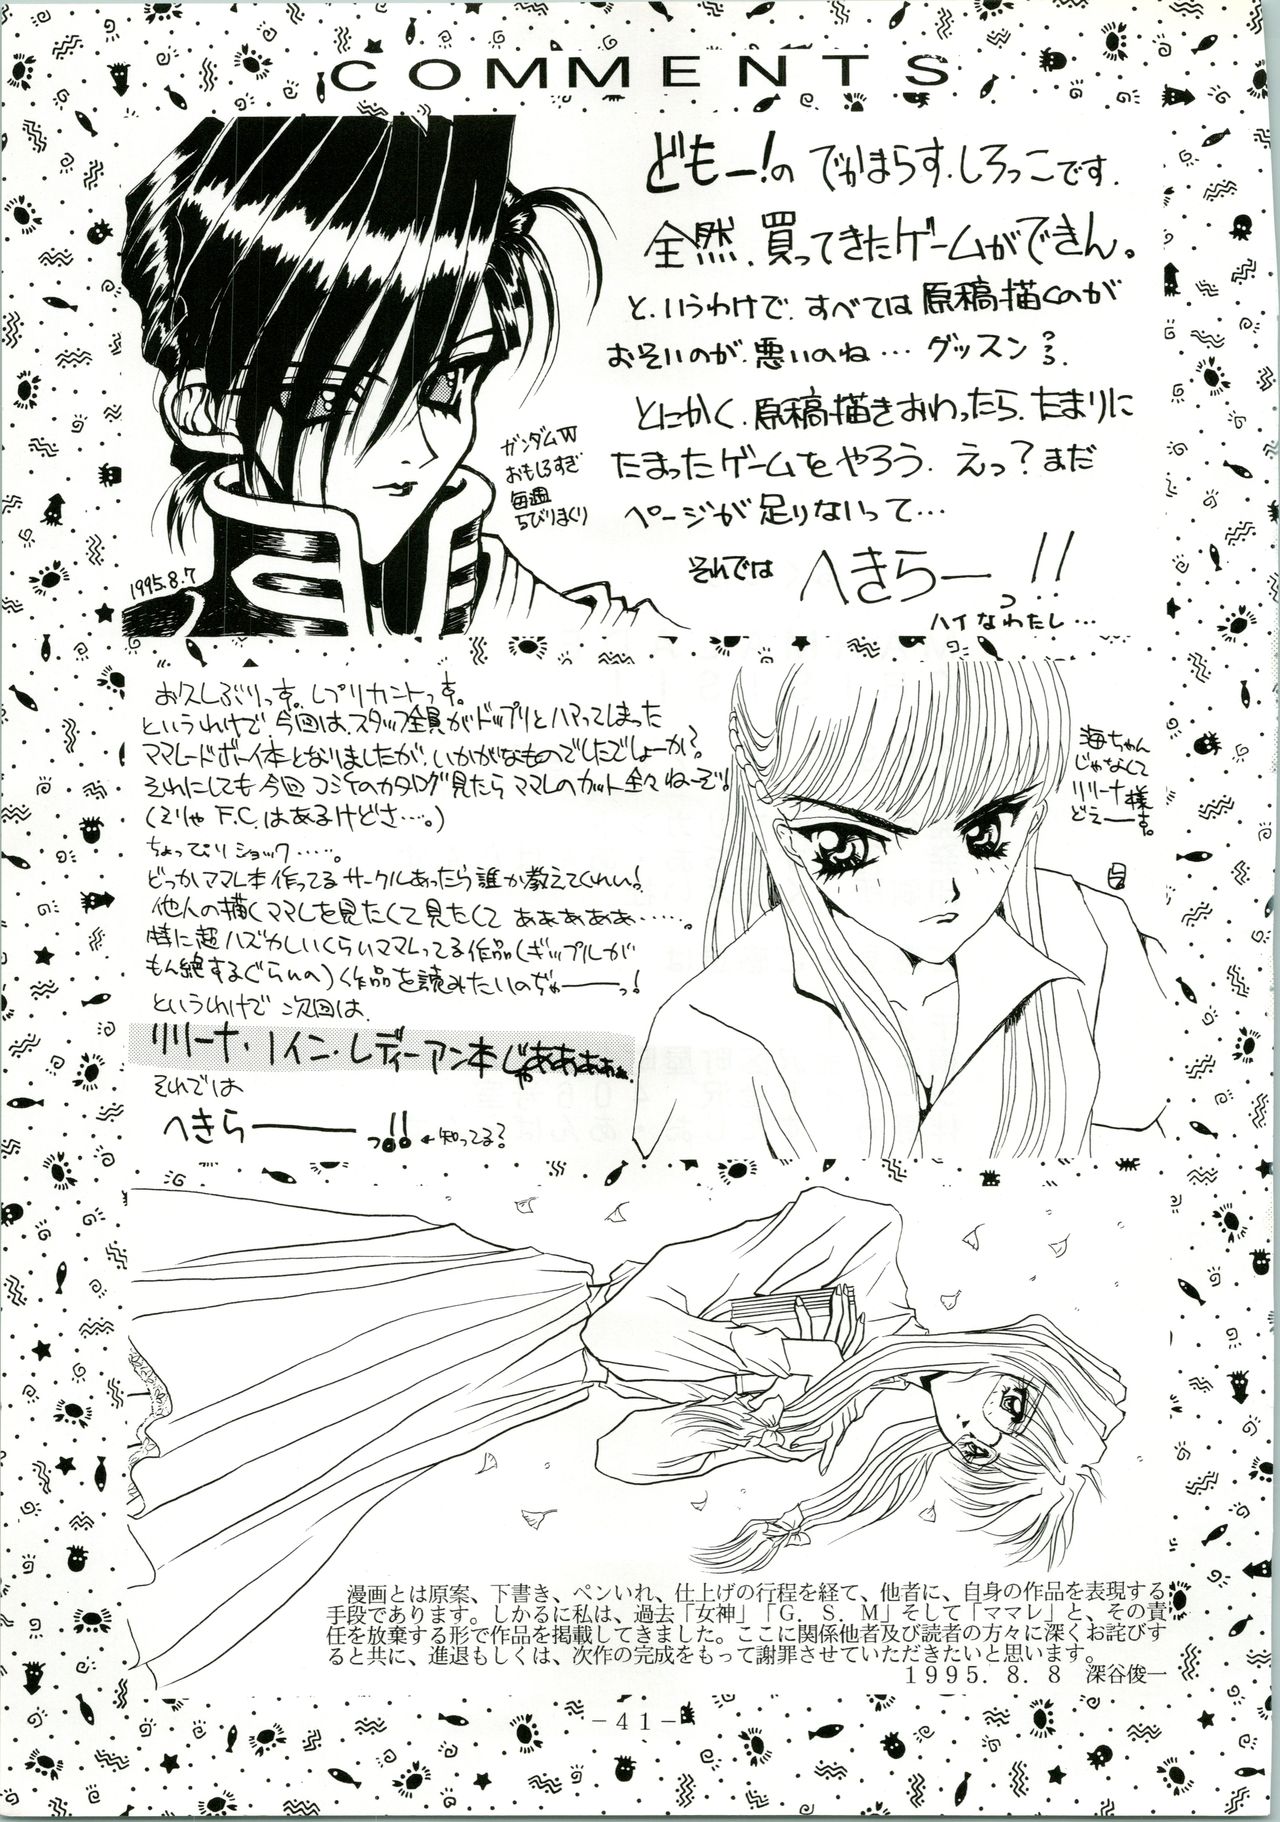 COMMENTS
どもー!の でかまらす.しろっこです.
全然.買ってきたゲームができん。
と.いうわけで.すべては原稿描くのが
おそいのが.悪いのね…グッスン
とにかく.原稿描きおわったら.たまりに
たまったゲームをやろう.えっ?まだ
ページが足りないって…
それでは へきらーっ!!
ハイなわたし…
ガンダムW
おもしろすぎ
毎週
ちびりまくり
1995.8.7
お久しぶりっす。レプリカントっす。
というわけで、今回は、スタッフ全員がドップリとハマってしまった
ママレードボーイ本となりましたが、いかがなものでしたでしょーか?
それにしても今回コミケのカタログ見たらママレのカット全々ねーぞ!
(えりゃF.C.はあるけどさ…。)
ちょっぴりショック……。
どっかママレ本作ってるサークルあったら誰か教えてくれい!
他人の描くママレを見たくて見たくて ああああああ……。
特に超ハズかしいくらいママレってる作品(ギップルが
もん絶するぐらいの)く作品を読みたいのぢゃ――っ!
というわけで 次回は、
リリーナ・ノイン・レディーアン本じゃああああぁ
それでは
へきら――っ!! ←知ってる?
海ちゃん
じゃなくて
リリーナ様
どえーーす。
漫画とは原案、下書き、ペンいれ、仕上げの行程を経て、他者に、自身の作品を表現する
手段であります。しかるに私は、過去「女神」「G.S.M」そして「ママレ」と、その責
任を放棄する形で作品を掲載してきました。ここに関係他者及び読者の方々に深くお詫びす
ると共に、進退もしくは、次作の完成をもって謝罪させていただきたいと思います。
1995.8.8 深谷俊一
－41－